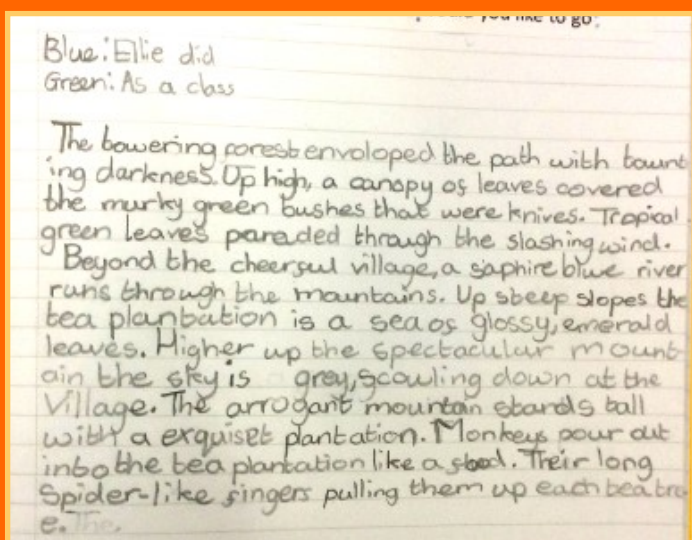 you like to go?
Blue: Ellie did
Green: As a class
The towering forest enveloped the path with taunt
ing darkness. Up high, a canopy of leaves covered
the murky green bushes that were knives. Tropical
green leaves paraded through the slashing wind.
Beyond the cheerful village, a saphire blue river
runs through the mountains. Up steep slopes the
tea plantation is a sea of glossy, emerald
leaves. Higher up the spectacular mount
ain the sky is grey, scowling down at the
Village. The arrogant mountain stands tall
with a exquiset plantation. Monkeys pour out
into the tea plantation like a . Their long
Spider-like fingers pulling them up each tea tre
e. The.